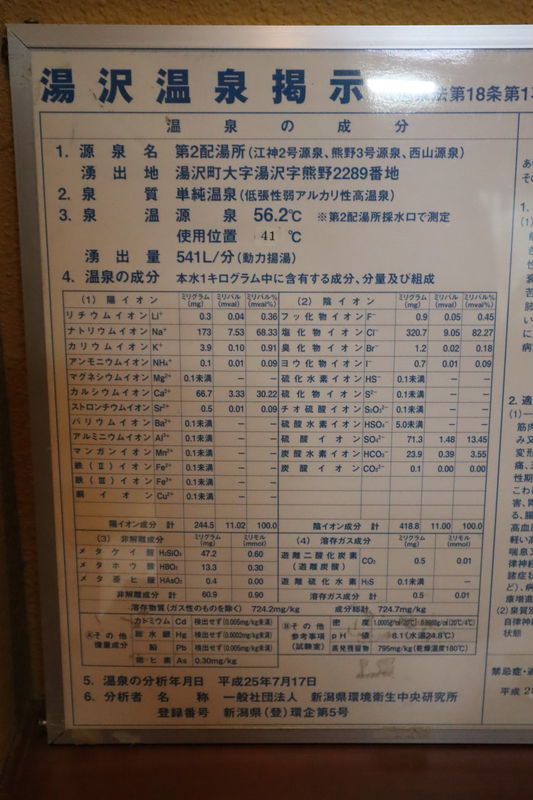 湯沢温泉掲示
法第18条第1
温泉の成分
1. 源泉名 第2配湯所(江神2号源泉、熊野3号源泉、西山源泉)
湧出地 湯沢町大字湯沢字熊野2289番地
2. 泉質 単純温泉(低張性弱アルカリ性高温泉)
3. 泉温 源泉 56.2℃ ※第2配湯所採水口で測定
使用位置 41 ℃
湧出量 541L/分(動力揚湯)
4. 温泉の成分 本水1キログラム中に含有する成分、分量及び組成
(1) 陽イオン ミリグラム(mg) ミリバル(mval) ミリバル%(mval%) (2) 陰イオン ミリグラム(mg) ミリバル(mval) ミリバル%(mval%)
リチウムイオン Li⁺ 0.3 0.04 0.36 フッ化物イオン F⁻ 0.9 0.05 0.45
ナトリウムイオン Na⁺ 173 7.53 68.33 塩化物イオン Cl⁻ 320.7 9.05 82.27
カリウムイオン K⁺ 3.9 0.10 0.91 臭化物イオン Br⁻ 1.2 0.02 0.18
アンモニウムイオン NH₄⁺ 0.1 0.01 0.09 ヨウ化物イオン I⁻ 0.7 0.01 0.09
マグネシウムイオン Mg²⁺ 0.1未満 — — 硫化水素イオン HS⁻ 0.1未満 — —
カルシウムイオン Ca²⁺ 66.7 3.33 30.22 硫化物イオン S²⁻ 0.1未満 — —
ストロンチウムイオン Sr²⁺ 0.5 0.01 0.09 チオ硫酸イオン S₂O₃²⁻ 0.1未満 — —
バリウムイオン Ba²⁺ 0.1未満 — — 硫酸水素イオン HSO₄⁻ 5.0未満 — —
アルミニウムイオン Al³⁺ 0.1未満 — — 硫酸イオン SO₄²⁻ 71.3 1.48 13.45
マンガンイオン Mn²⁺ 0.1未満 — — 炭酸水素イオン HCO₃⁻ 23.9 0.39 3.55
鉄(II)イオン Fe²⁺ 0.1未満 — — 炭酸イオン CO₃²⁻ 0.1 0.00 0.00
鉄(III)イオン Fe³⁺ 0.1未満 — —
銅イオン Cu²⁺ 0.1未満 — —
陽イオン成分 計 244.5 11.02 100.0 陰イオン成分 計 418.8 11.00 100.0
(3) 非解離成分 ミリグラム(mg) ミリモル(mmol) (4) 溶存ガス成分 ミリグラム(mg) ミリモル(mmol)
メタケイ酸 H₂SiO₃ 47.2 0.60 遊離二酸化炭素(遊離炭酸) CO₂ 0.5 0.01
メタホウ酸 HBO₂ 13.3 0.30
メタ亜ヒ酸 HAsO₂ 0.4 0.00 遊離硫化水素 H₂S 0.1未満 —
非解離成分 計 60.9 0.90 溶存ガス成分 計 0.5 0.01
溶存物質(ガス性のものを除く) 724.2mg/kg 成分総計 724.7mg/kg
Ⓐその他微量成分 カドミウム Cd 検出せず(0.005mg/kg未満) Ⓑその他参考事項(試験室) 密度
総水銀 Hg 検出せず(0.0002mg/kg未満) pH 8.1(水温24.8℃)
鉛 Pb 検出せず(0.005mg/kg未満) 蒸発残留物 795mg/kg(乾燥温度180℃)
総ヒ素 As 0.30mg/kg
5. 温泉の分析年月日 平成25年7月17日
6. 分析者 名称 一般社団法人 新潟県環境衛生中央研究所
登録番号 新潟県(登)環企第5号